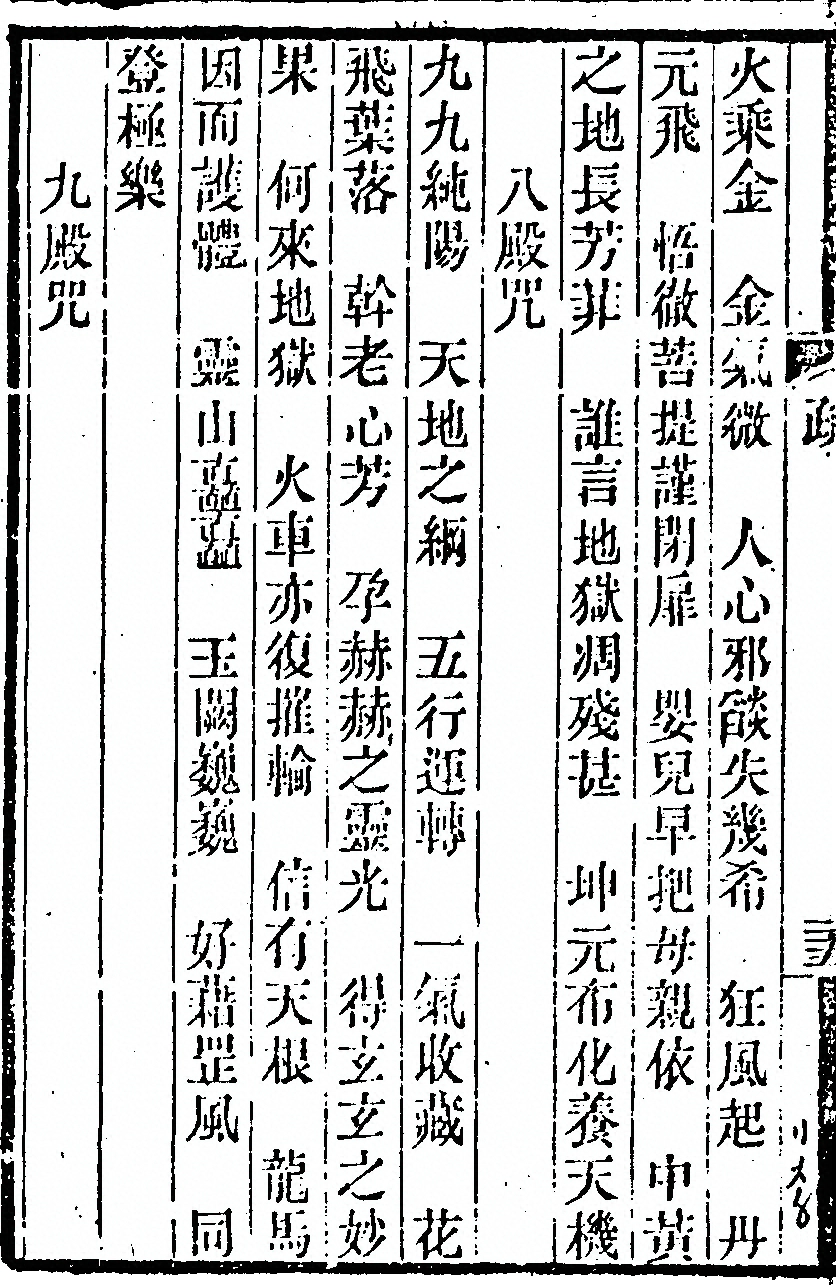 火乘金　金氣微　人心邪餤失幾希　狂風起　丹
元飛　悟徹菩提謹閉扉　嬰兒早把母親依　中黃
之地長芳菲　誰言地獄凋殘甚　坤元布化養天機
八殿咒
九九純陽　天地之綱　五行運轉　一氣收藏　花
飛葉落　幹老心芳　孕赫赫之靈光　得玄玄之妙
果　何來地獄　火車亦復摧輪　信有天根　龍馬
因而護體　靈山矗矗　玉闕巍巍　好藉罡風　同
登極樂
九殿咒